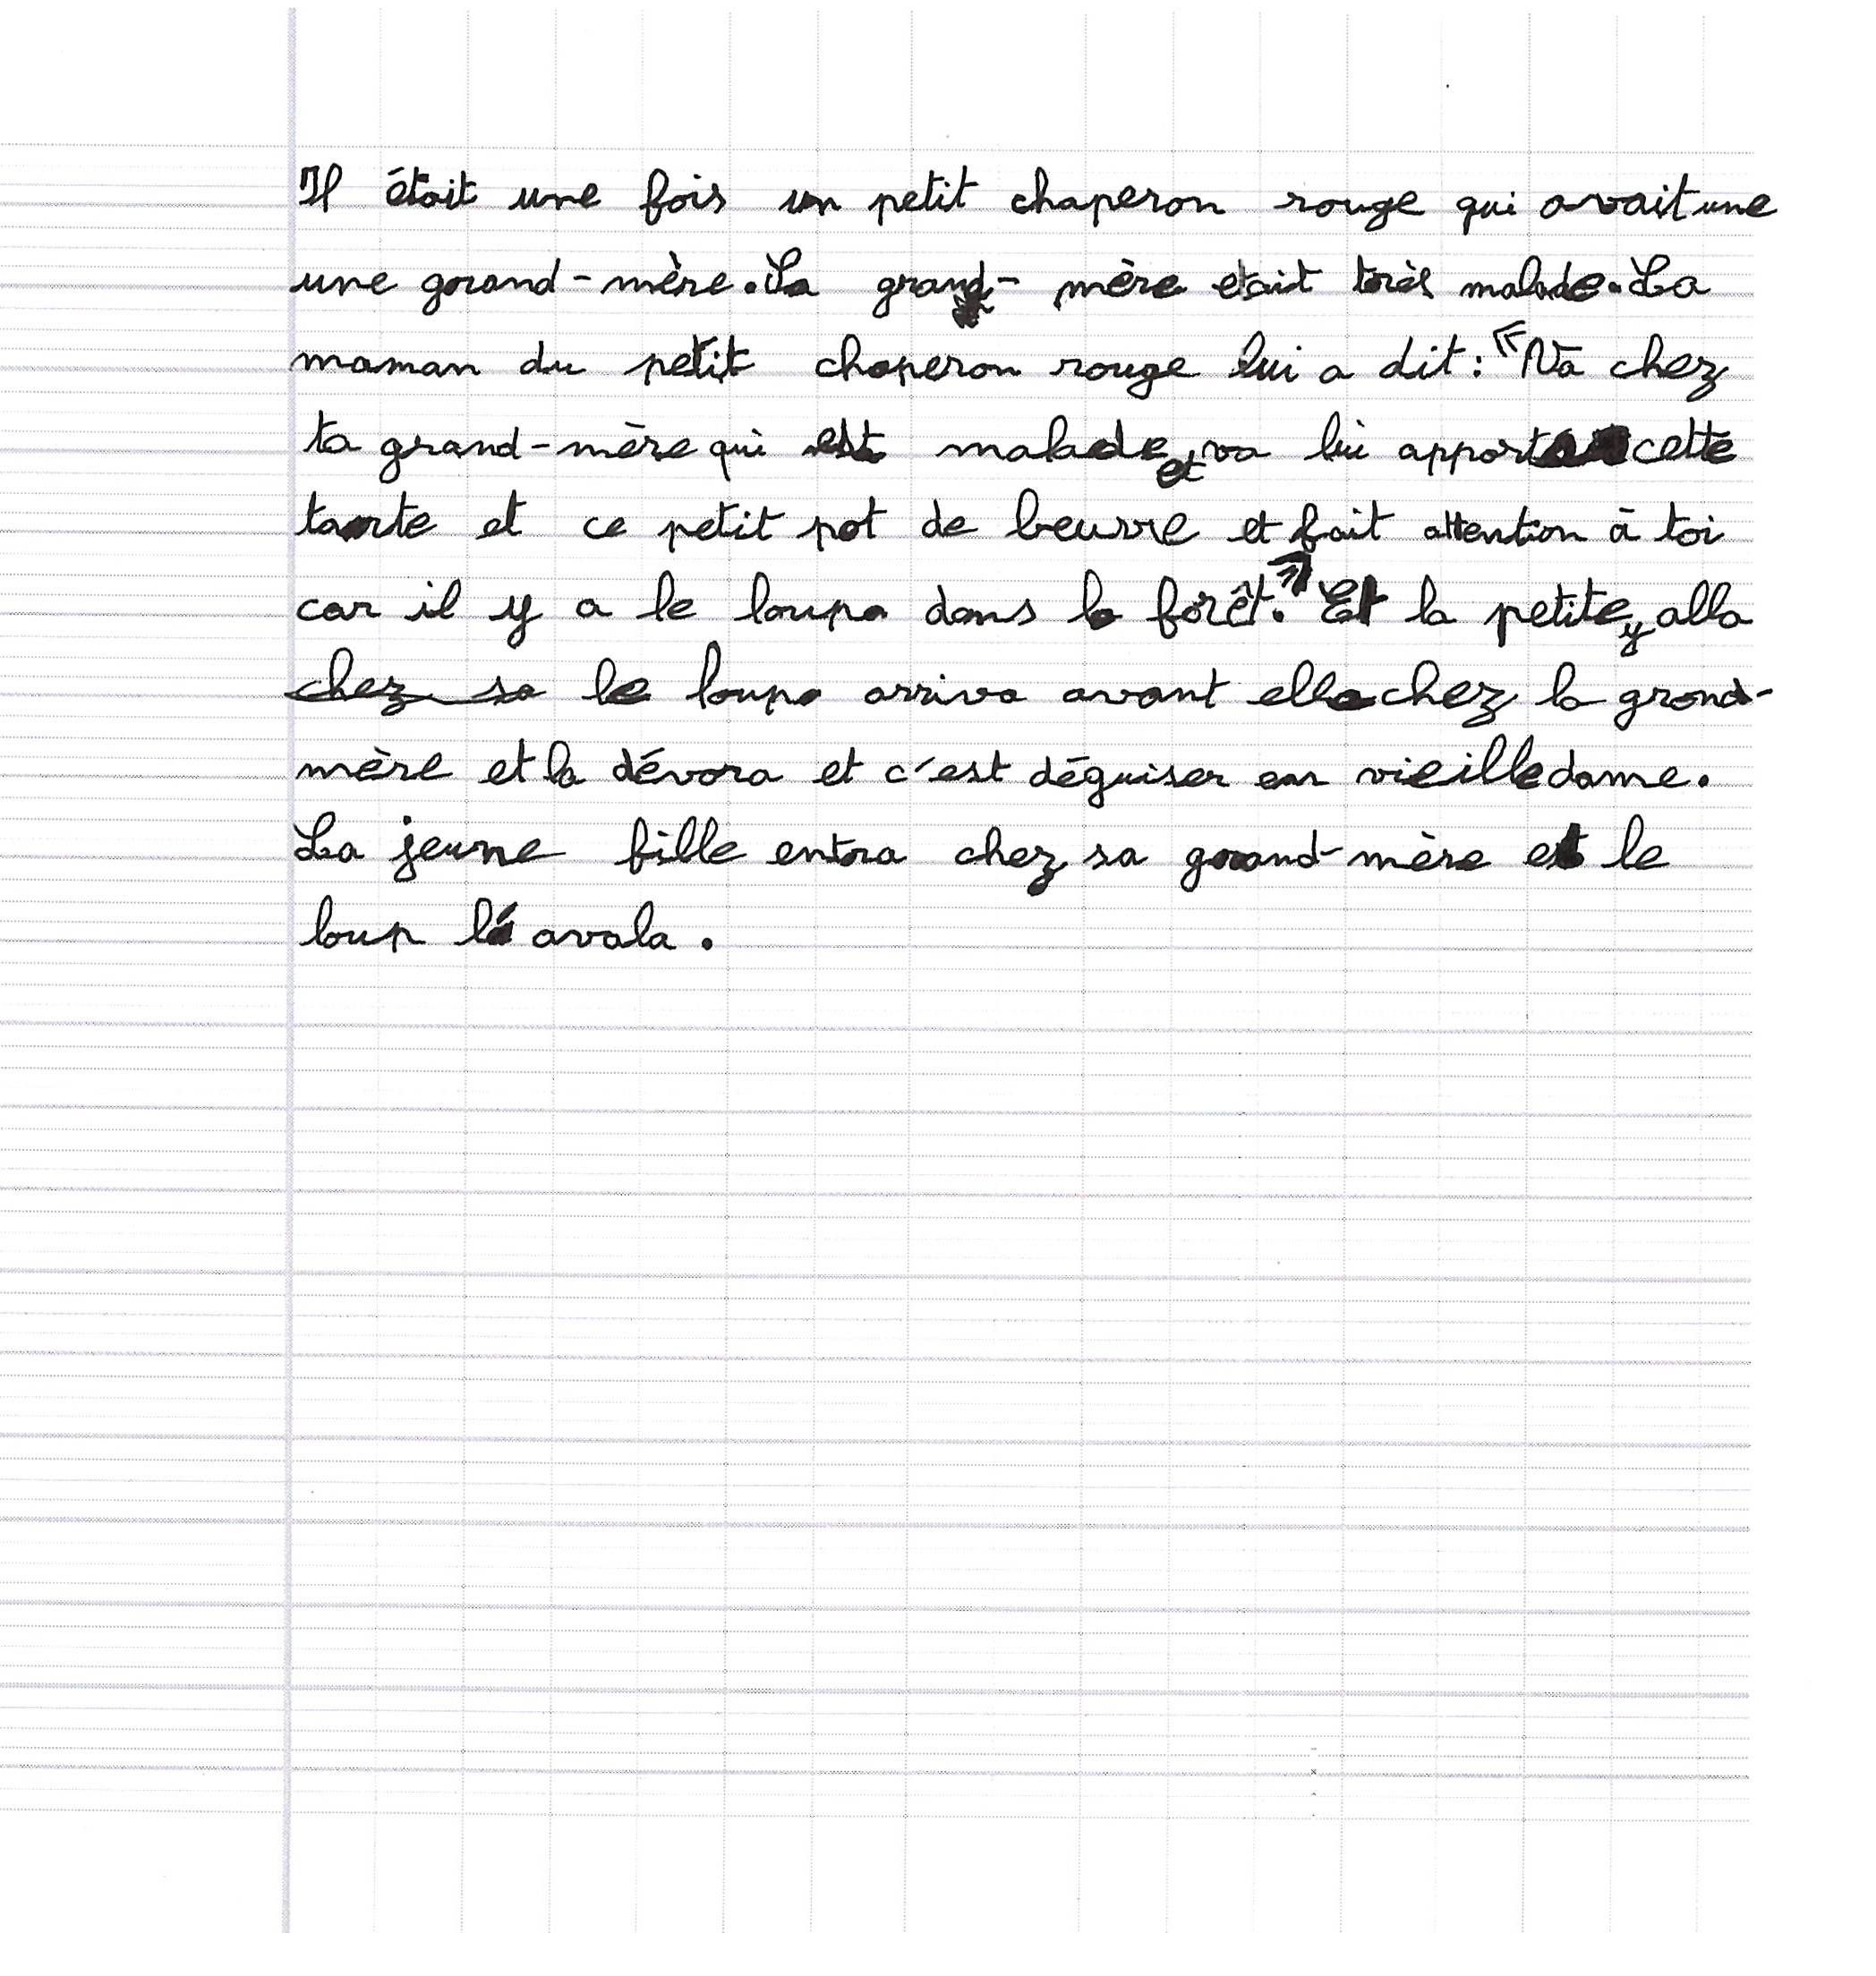 Il était une fois un petit chaperon rouge qui avait une
une grand-mère. La grand-mère etait très malade. La
maman du petit chaperon rouge lui a dit : « Va chez
ta grand-mère qui est malade et va lui apport cette
tarte et ce petit pot de beurre et fait attention à toi
car il y a le loup dans la forêt. » Et la petite y alla
chez sa le loup arriva avant elle chez la grand-
mère et la dévora et c'est déguiser en vieille dame.
La jeune fille entra chez sa grand-mère et le
loup l'avala.